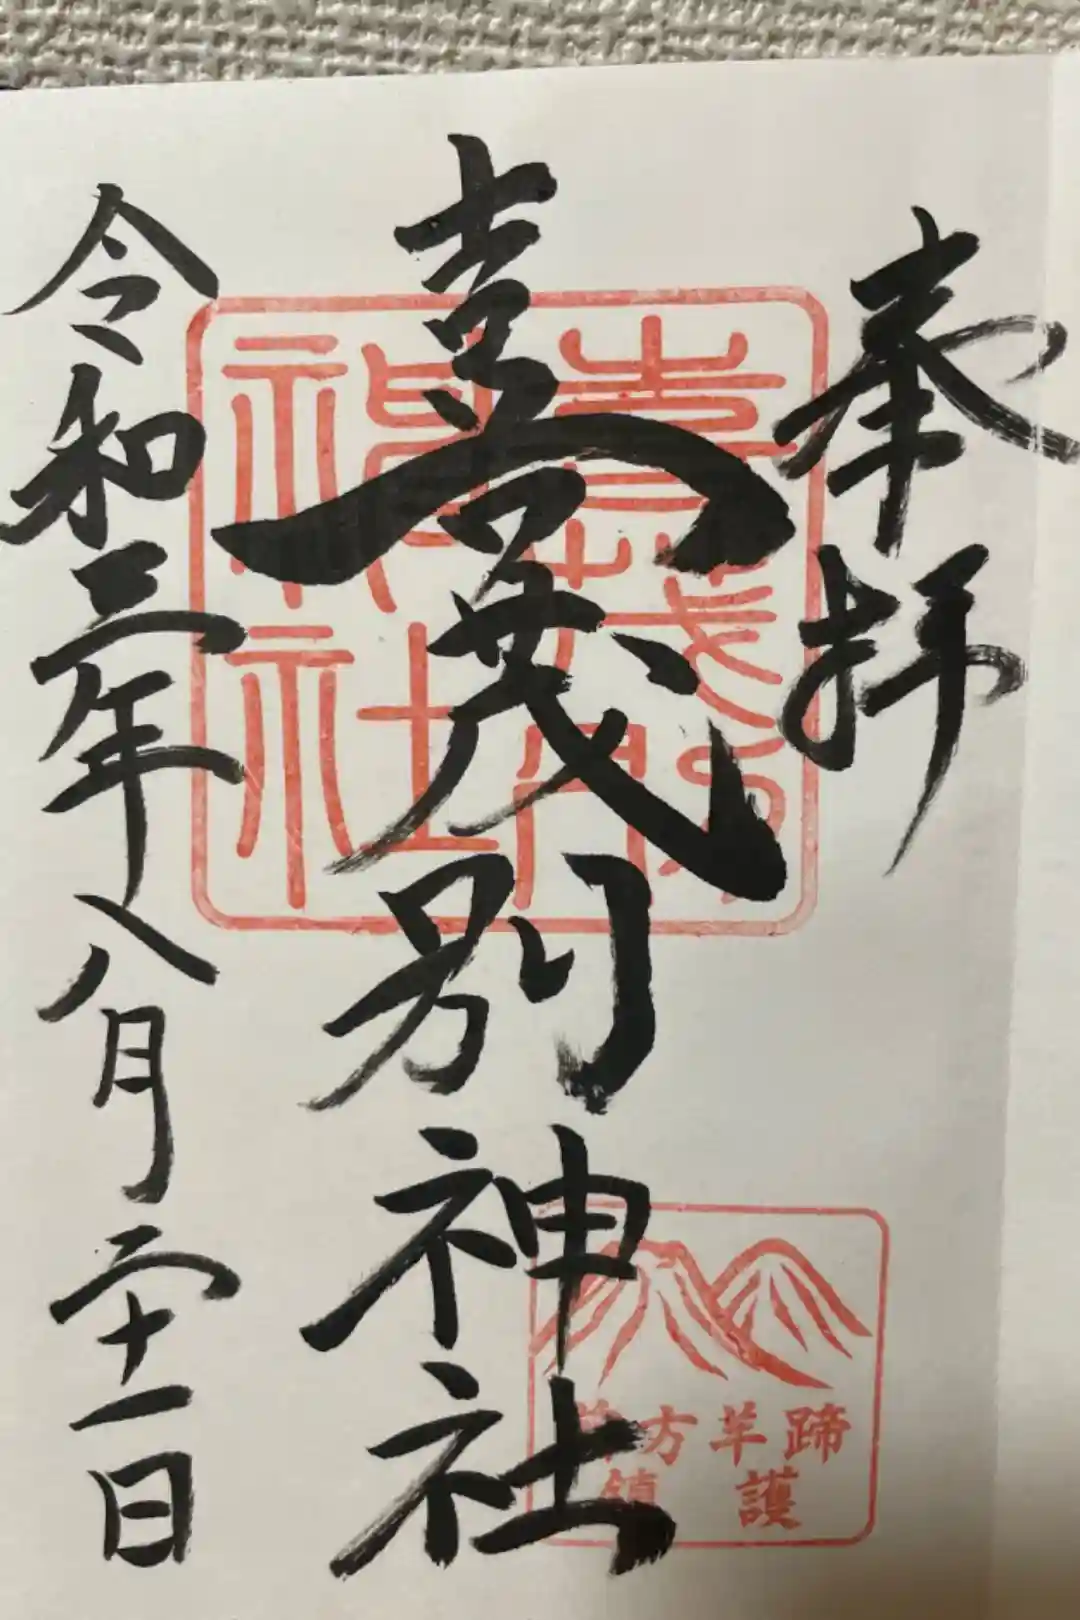 奉拝
喜茂別神社
令和三年八月二十一日
喜茂別
神社
方羊蹄
鎮護